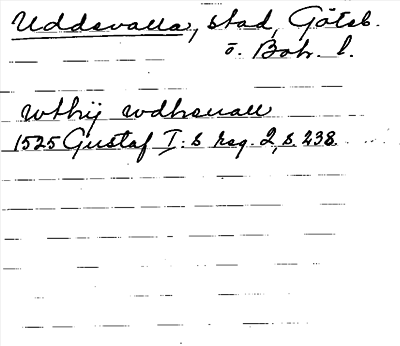 Uddevalla, stad, Göteb.
o. Boh. l.
wthij wdhsuall
1525 Gustaf I:s reg. 2, s. 238